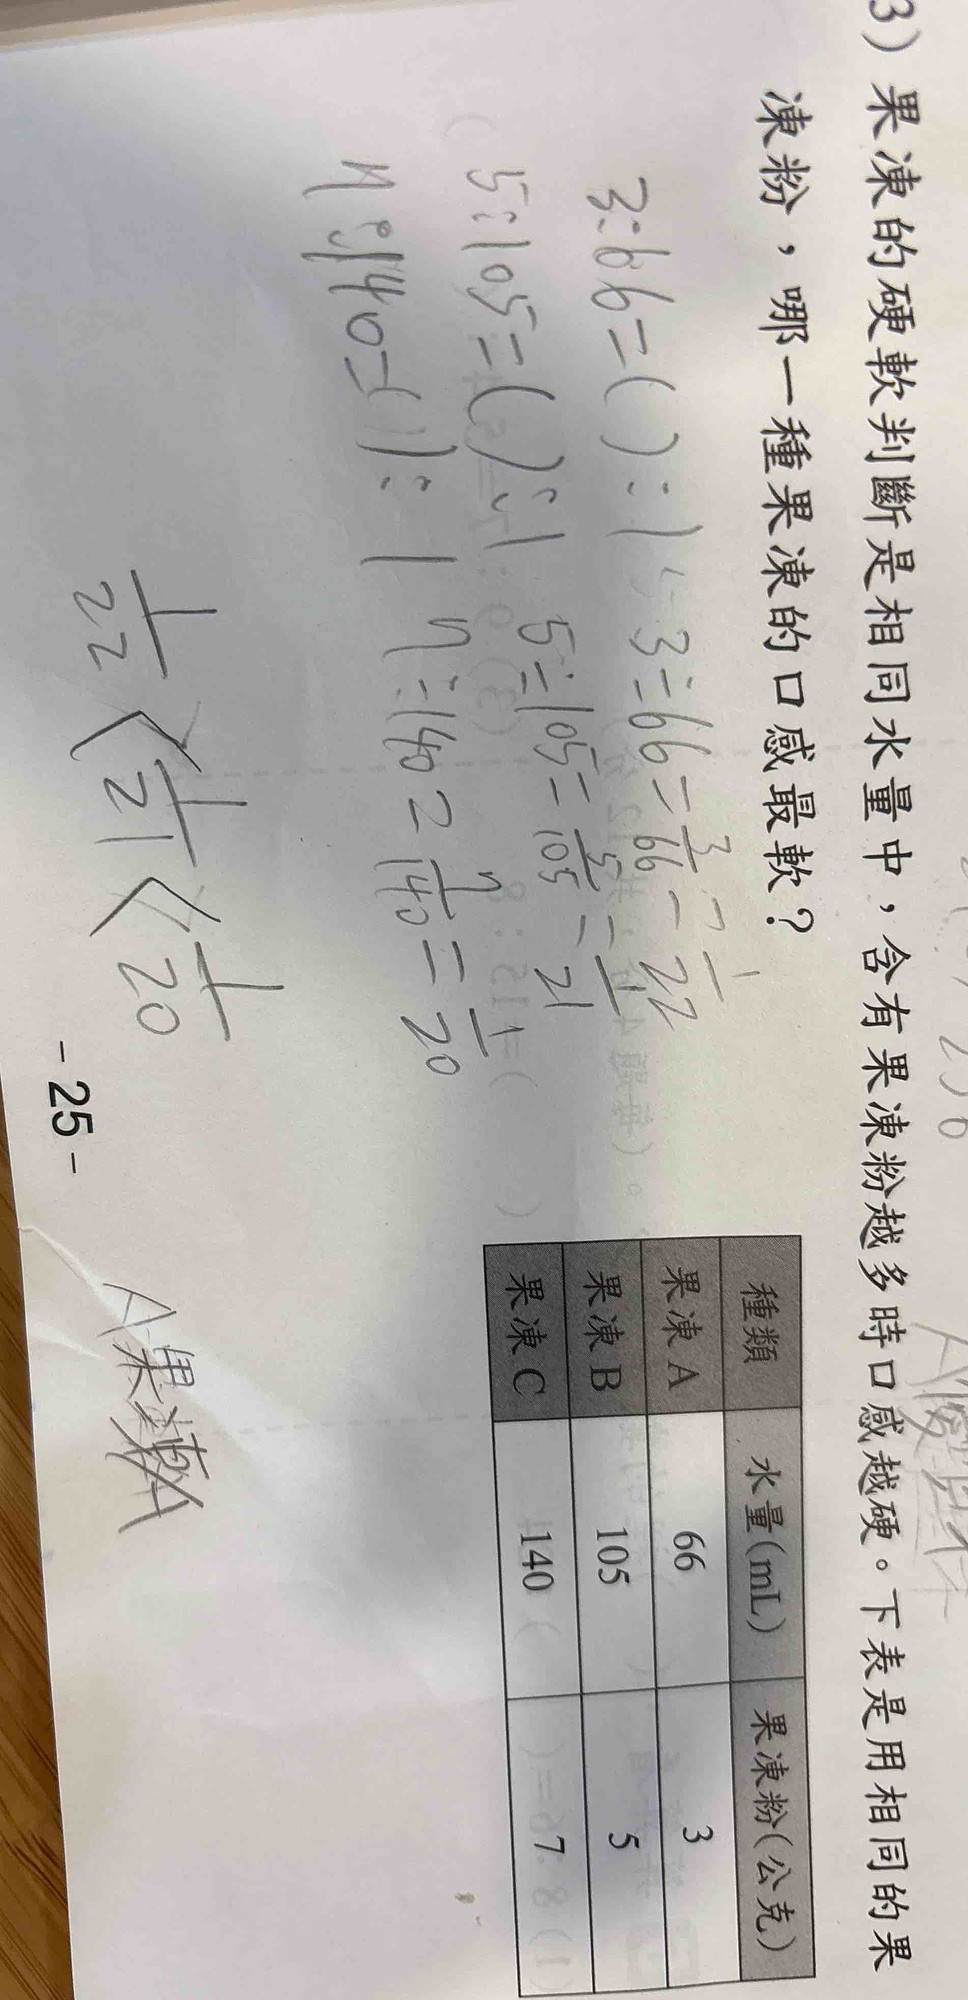 3) 果凍的硬軟判斷是相同水量中，含有果凍粉越多時口感越硬。下表是用相同的果
凍粉，哪一種果凍的口感最軟？
種類 水量(mL) 果凍粉(公克)
果凍A 66 3
果凍B 105 5
果凍C 140 7
3:66=( ):1 3÷66=3/66=1/22
5:105=( ):1 5÷105=5/105=1/21
7:140=( ):1 7÷140=7/140=1/20
1/22<1/21<1/20
A果凍
-25-